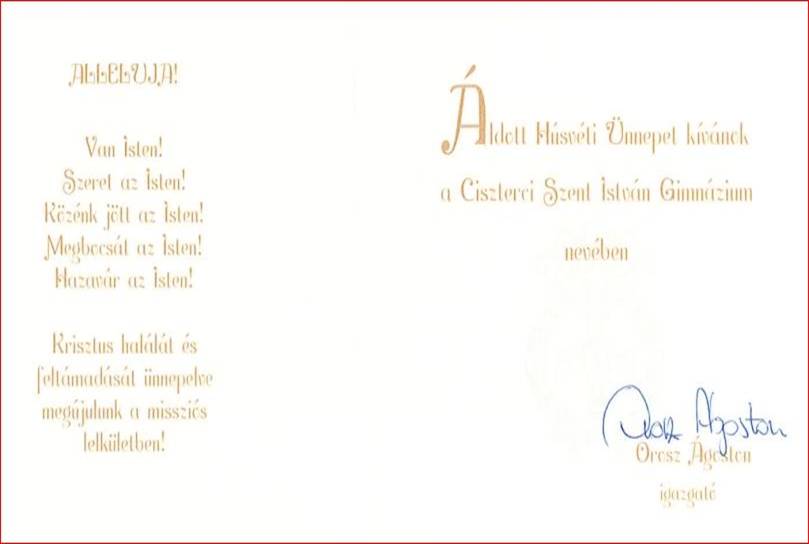 ALLELUJA!
Van Isten!
Szeret az Isten!
Közénk jött az Isten!
Megbocsát az Isten!
Hazavár az Isten!
Krisztus halálát és
feltámadását ünnepelve
megújulunk a missziós
lelkületben!
Áldott Húsvéti Ünnepet kívánok
a Ciszterci Szent István Gimnázium
nevében
Orosz Ágoston
Orosz Ágoston
igazgató